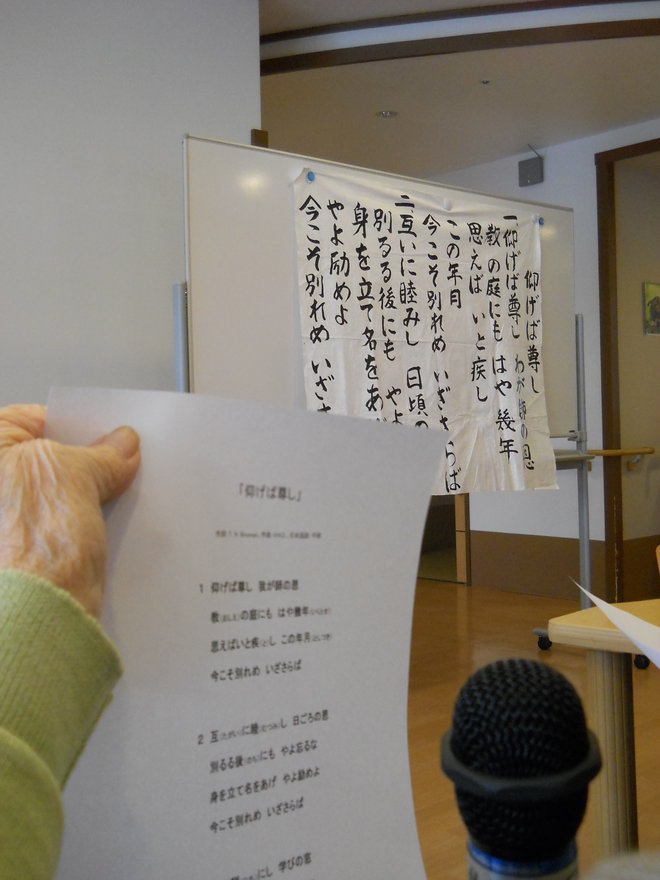 仰げば尊し
一仰げば尊し わが師の恩
教の庭にも はや 幾年
思えば いと疾し
この年月
今こそ別れめ いざさらば
二互いに睦みし 日頃の
別るる後にも やよ
身を立て名をあ
やよ励めよ
今こそ別れめ いざさ
「仰げば尊し」
1 仰げば尊し 我が師の恩
教(おしえ)の庭にも はや幾年(いくとせ)
思えばいと疾(と)し この年月(としつき)
今こそ別れめ いざさらば
2 互(たがい)に睦(むつみ)し 日ごろの恩
別るる後(のち)にも やよ忘るな
身を立て名をあげ やよ励めよ
今こそ別れめ いざさらば
にし 学びの窓